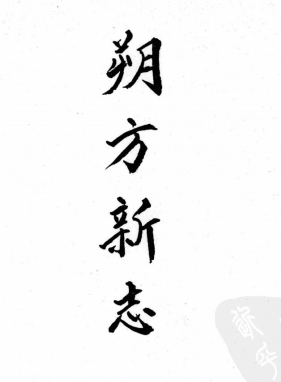 朔方新志